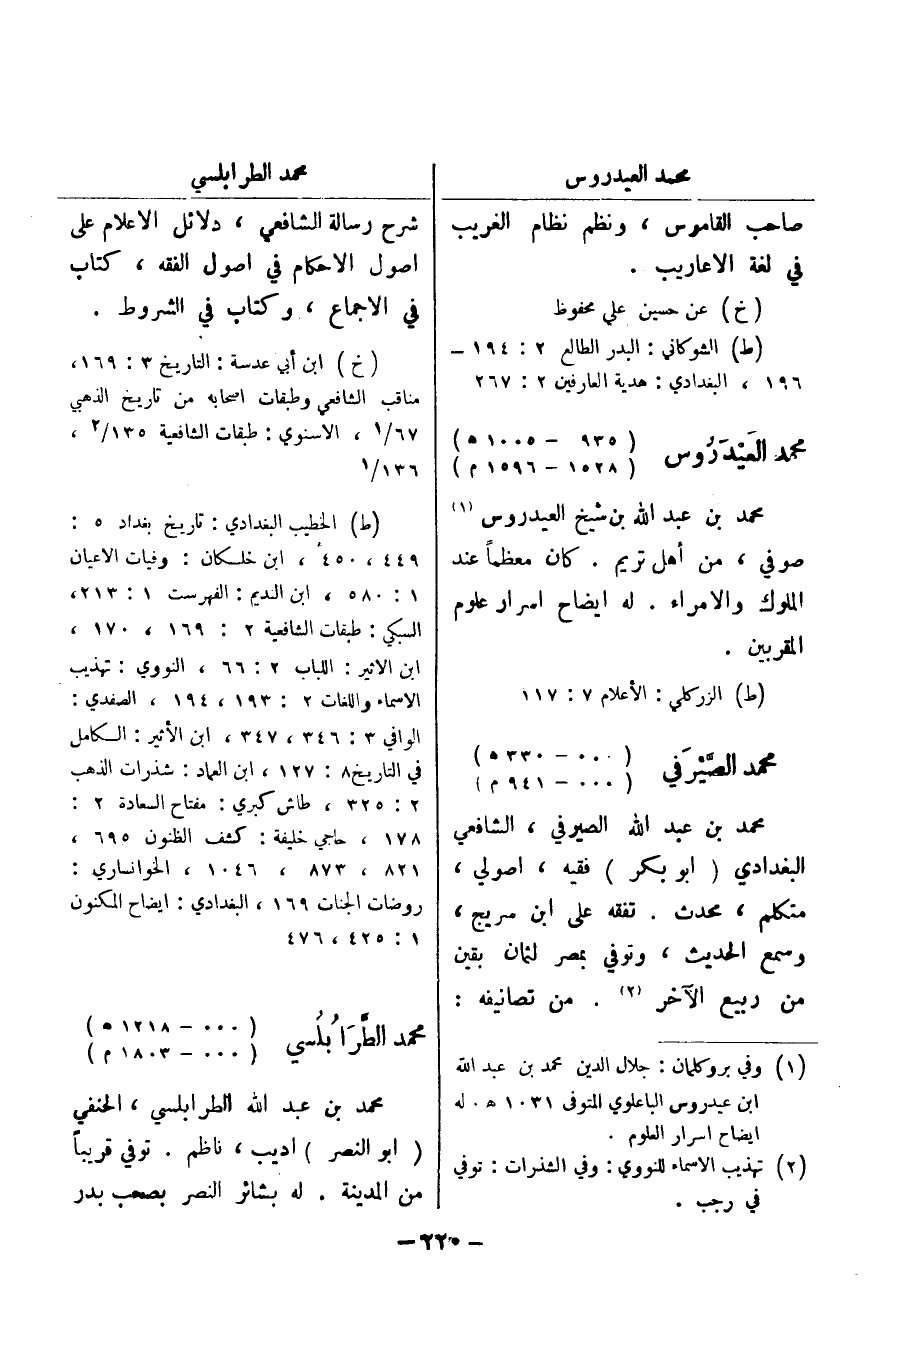 محمد العيدروس
صاحب القاموس ، ونظم نظام الغريب
في لغة الاعاريب .
(خ) عن حسين علي محفوظ
(ط) الشوكاني : البدر الطالع ٢ : ١٩٤ –
١٩٦ ، البغدادي : هدية العارفين ٢ : ٢٦٧
محمد العَيْدَرُوس
( ٩٣٥ – ١٠٠٥ ه )
( ١٥٢٨ – ١٥٩٦ م )
محمد بن عبد الله بن شيخ العيدروس (١)
صوفي ، من أهل تريم . كان معظماً عند
الملوك والامراء . له ايضاح اسرار علوم
المقربين .
(ط) الزركلي : الأعلام ٧ : ١١٧
محمد الصَّيْرَفي
( ٠٠٠ – ٣٣٠ ه )
( ٠٠٠ – ٩٤١ م )
محمد بن عبد الله الصيرفي ، الشافعي
البغدادي ( ابو بكر ) فقيه ، اصولي ،
متكلم ، محدث . تفقه على ابن سريج ،
وسمع الحديث ، وتوفي بمصر لثمان بقين
من ربيع الآخر (٢) . من تصانيفه :
(١) وفي بروكلمان : جلال الدين محمد بن عبد الله
ابن عيدروس الباعلوي المتوفى ١٠٣١ ه . له
ايضاح اسرار العلوم .
(٢) تهذيب الاسماء للنووي : وفي الشذرات : توفي
في رجب .
محمد الطرابلسي
شرح رسالة الشافعي ، دلائل الاعلام على
اصول الاحكام في اصول الفقه ، كتاب
في الاجماع ، وكتاب في الشروط .
(خ) ابن أبي عدسة : التاريخ ٣ : ١٦٩،
مناقب الشافعي وطبقات اصحابه من تاريخ الذهبي
١/٦٧ ، الاسنوي : طبقات الشافعية ٢/١٣٥ ،
١/١٣٦
(ط) الخطيب البغدادي : تاريخ بغداد ٥ :
٤٤٩ ، ٤٥٠ ، ابن خلكان : وفيات الاعيان
١ : ٥٨٠ ، ابن النديم : الفهرست ١ : ٢١٣،
السبكي : طبقات الشافعية ٢ : ١٦٩ ، ١٧٠ ،
ابن الاثير : اللباب ٢ : ٦٦ ، النووي : تهذيب
الاسماء واللغات ٢ : ١٩٣ ، ١٩٤ ، الصفدي :
الوافي ٣ : ٣٤٦ ، ٣٤٧ ، ابن الأثير : الكامل
في التاريخ ٨ : ١٢٧ ، ابن العماد : شذرات الذهب
٢ : ٣٢٥ ، طاش كبري : مفتاح السعادة ٢ :
١٧٨ ، حاجي خليفة : كشف الظنون ٦٩٥ ،
٨٢١ ، ٨٧٣ ، ١٠٤٦ ، الخوانساري :
روضات الجنات ١٦٩ ، البغدادي : ايضاح المكنون
١ : ٤٢٥ ، ٤٧٦
محمد الطَّرَابُلُسي
( ٠٠٠ – ١٢١٨ ه )
( ٠٠٠ – ١٨٠٣ م )
محمد بن عبد الله الطرابلسي ، الحنفي
( ابو النصر ) اديب ، ناظم . توفي قريباً
من المدينة . له بشائر النصر بصحب بدر
– ٢٢٠ –